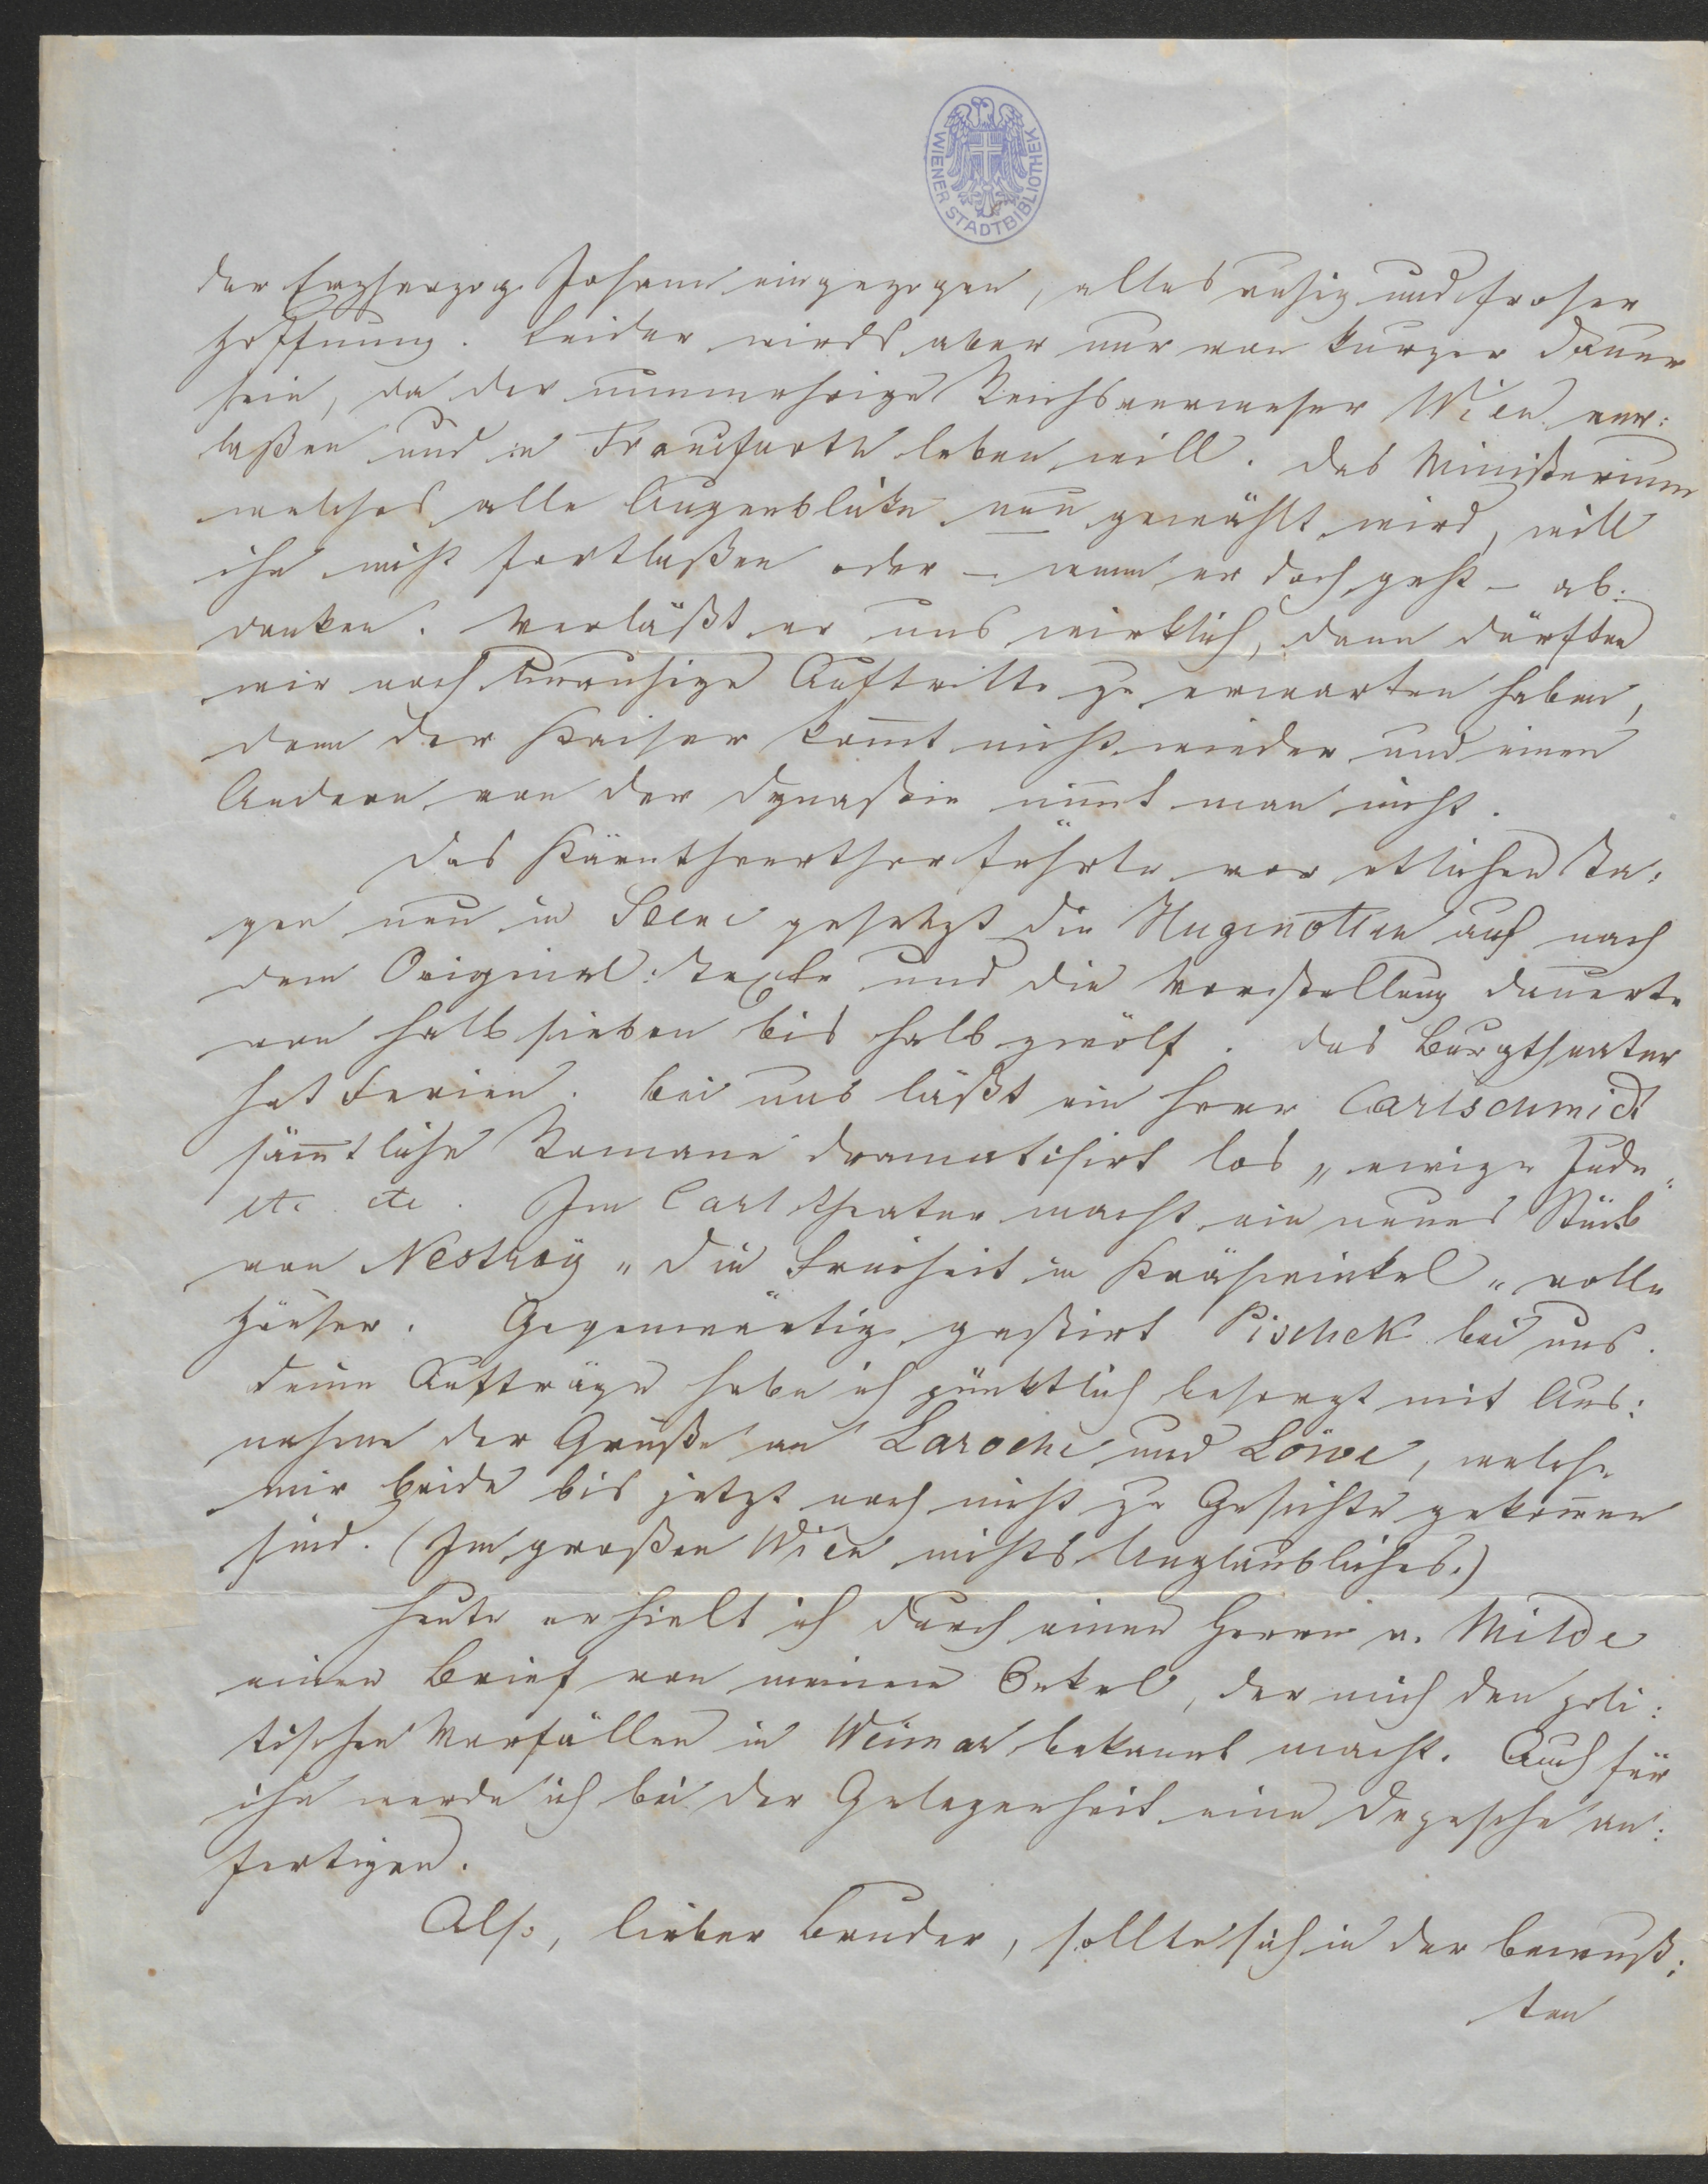 WIENER STADTBIBLIOTHEK
der Erzherzog Johann eingezogen, alles ruhig und froher
Hoffnung. Leider wirds aber nur von kurzer Dauer
sein, da der nunmehrige Reichsverweser Wien ver:
laßen und in Francfurth leben will. Das Ministerium
welches alle Augenblicke neu gewählt wird, will
ihn nicht fortlaßen oder – wenn er doch geht – ab:
danken. Verläßt er uns wirklich, dann dürften
wir noch unruhige Auftritte zu erwarten haben,
denn der Kaiser kom̅t nicht wieder und einen
Andern von der Dynastie nim̅t man nicht.
Das Kärnthnerthor führte vor etlichen Ta:
gen neu in Scene gesetzt die Hugenotten auf nach
dem Original: Texte und die Vorstellung dauerte
von halb sieben bis halb zwölf. Das Burgtheater
hat Ferien. Bei uns läßt ein Herr Carlschmidt
säm̅tliche Romane dramatisirt los „ewige Jude“
etc. etc. Im Carltheater macht ein neues Stück
von Nestroÿ „Die Freiheit in Krähwinkel“ volle
Häuser. Gegenwärtig gastirt Pischek bei uns.
Deine Aufträge habe ich pünktlich besorgt mit Aus:
nahme der Grüße an Laroche und Löwe, welche
mir beide bis jetzt noch nicht zu Gesichte gekom̅en
sind. (Im großen Wien nichts Unglaubliches.)
Heute erhielt ich durch einen Herrn v. Milde
einen Brief von meinem Onkel, der mich den poli:
tischen Vorfällen in Weimar bekannt macht. Auch für
ihn werde ich bei der Gelegenheit eine Depesche an:
fertigen.
Also, lieber Bruder, sollte sich in der bewuß:
ten